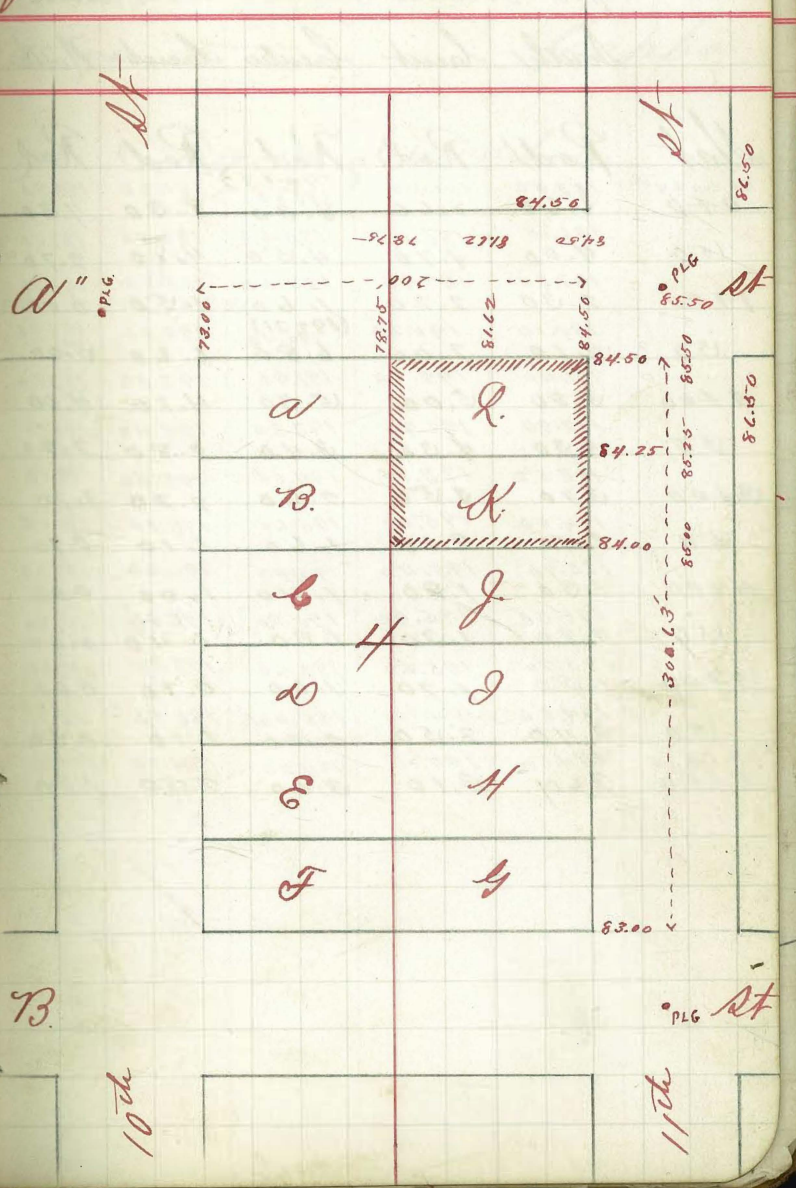 St
St
86.50
84.50
78.75
81.62
84.50
A" St
PLG.
200'
PLG
85.50
73.00
78.75
81.62
84.50
84.50
85.50
86.50
A
L.
84.25
85.25
B.
K.
84.00
85.00
C
J.
4
300.63'
D
I
E
H
F
G
83.00
B. St
PLG
10th
11th